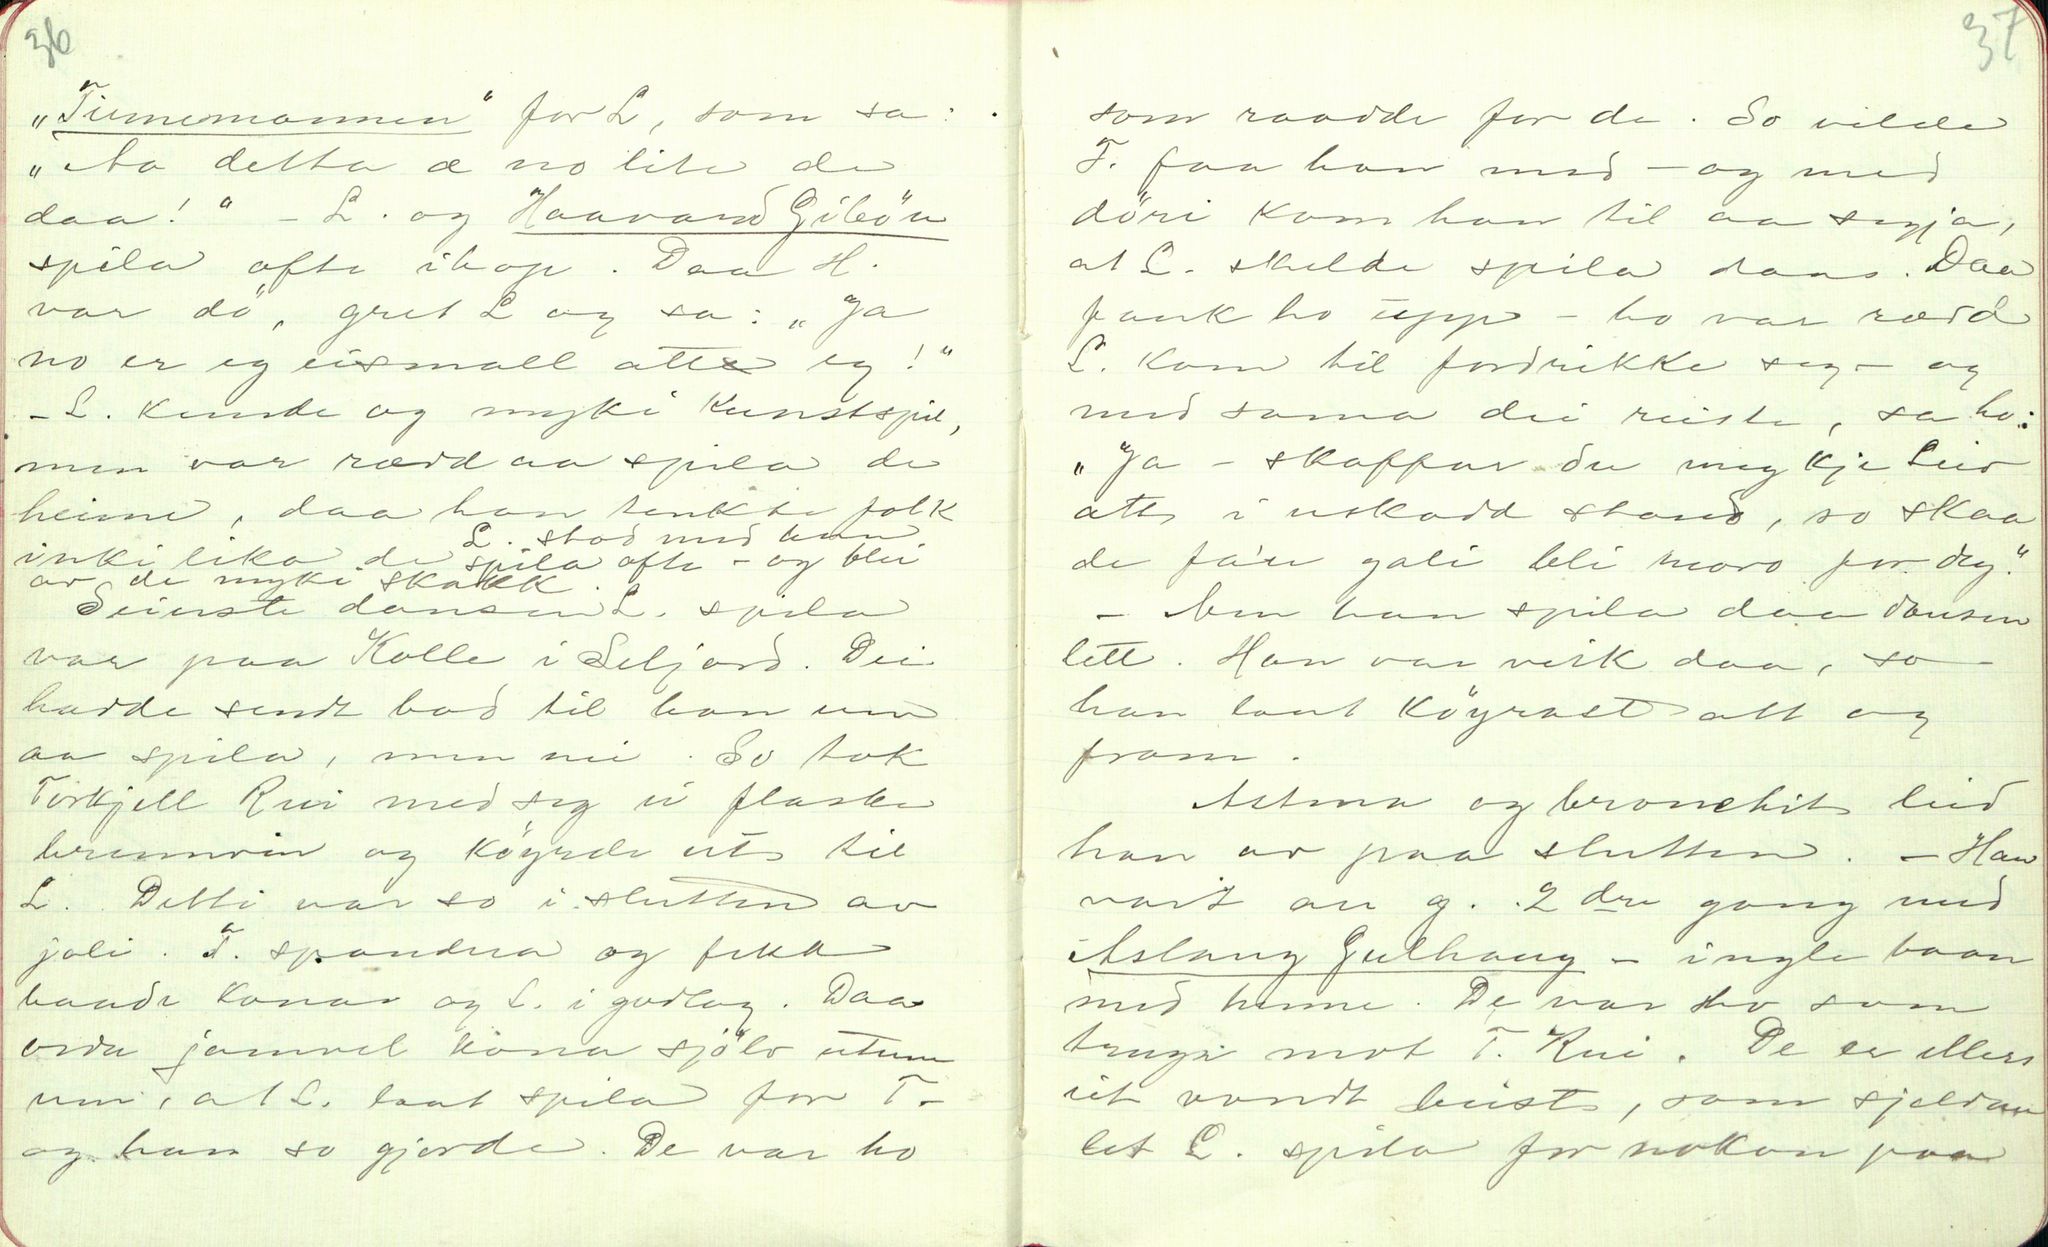 36
„Tinnemannen" for L, som sa:
„Aa detta æ no lite de
daa!" – L. og Haavard Gibøn
spila ofte ihop. Daa H.
var dö, gret L og sa: „Ja
no er eg eismall atte eg!"
– L. kunde og myki kunstspil,
men var rædd aa spila de
heime, daa han tenkte folk
inki lika de L. stod med han
spila ofte – og blei
av de myki skakk.
Seinste dansen L. spila
var paa Kolle i Seljord. Dei
hadde sendt bod til han um
aa spila, men nei. So tok
Torkjell Rui med seg ei flaske
brennvin og köyrde ut til
L. Detti var so i slutten av
joli. T. spandera og fekk
baade konar og L. i godlag. Daa
orda jamvel kona sjölv utum
um, at L. laut spila for T. –
og han so gjorde. De var ho
37
som raadde for de. So vilde
T. faa han med – og med
döri kom han til aa segja,
at L. skulde spila dans. Daa
fauk ho upp – ho var rædd
L. kom til fordrikke seg – og
med sama dei reiste, sa ho:
„Ja – skaffar du meg kje Leiv
att i uskadd stand, so skaa
de fa'en gali bli moro for deg."
– Men han spila daa dansen
lett. Han var veik daa, so
han laut köyrast att og
fram.
Astma og bronchit leid
han av paa slutten. – Han
vart an g. 2dre gang med
Aslaug Gulhaug – ingle baan
med henne. De var ho som
truga mot T. Rui. De er ellers
eit vondt beist, som sjeldan
let L. spila for nokon paa